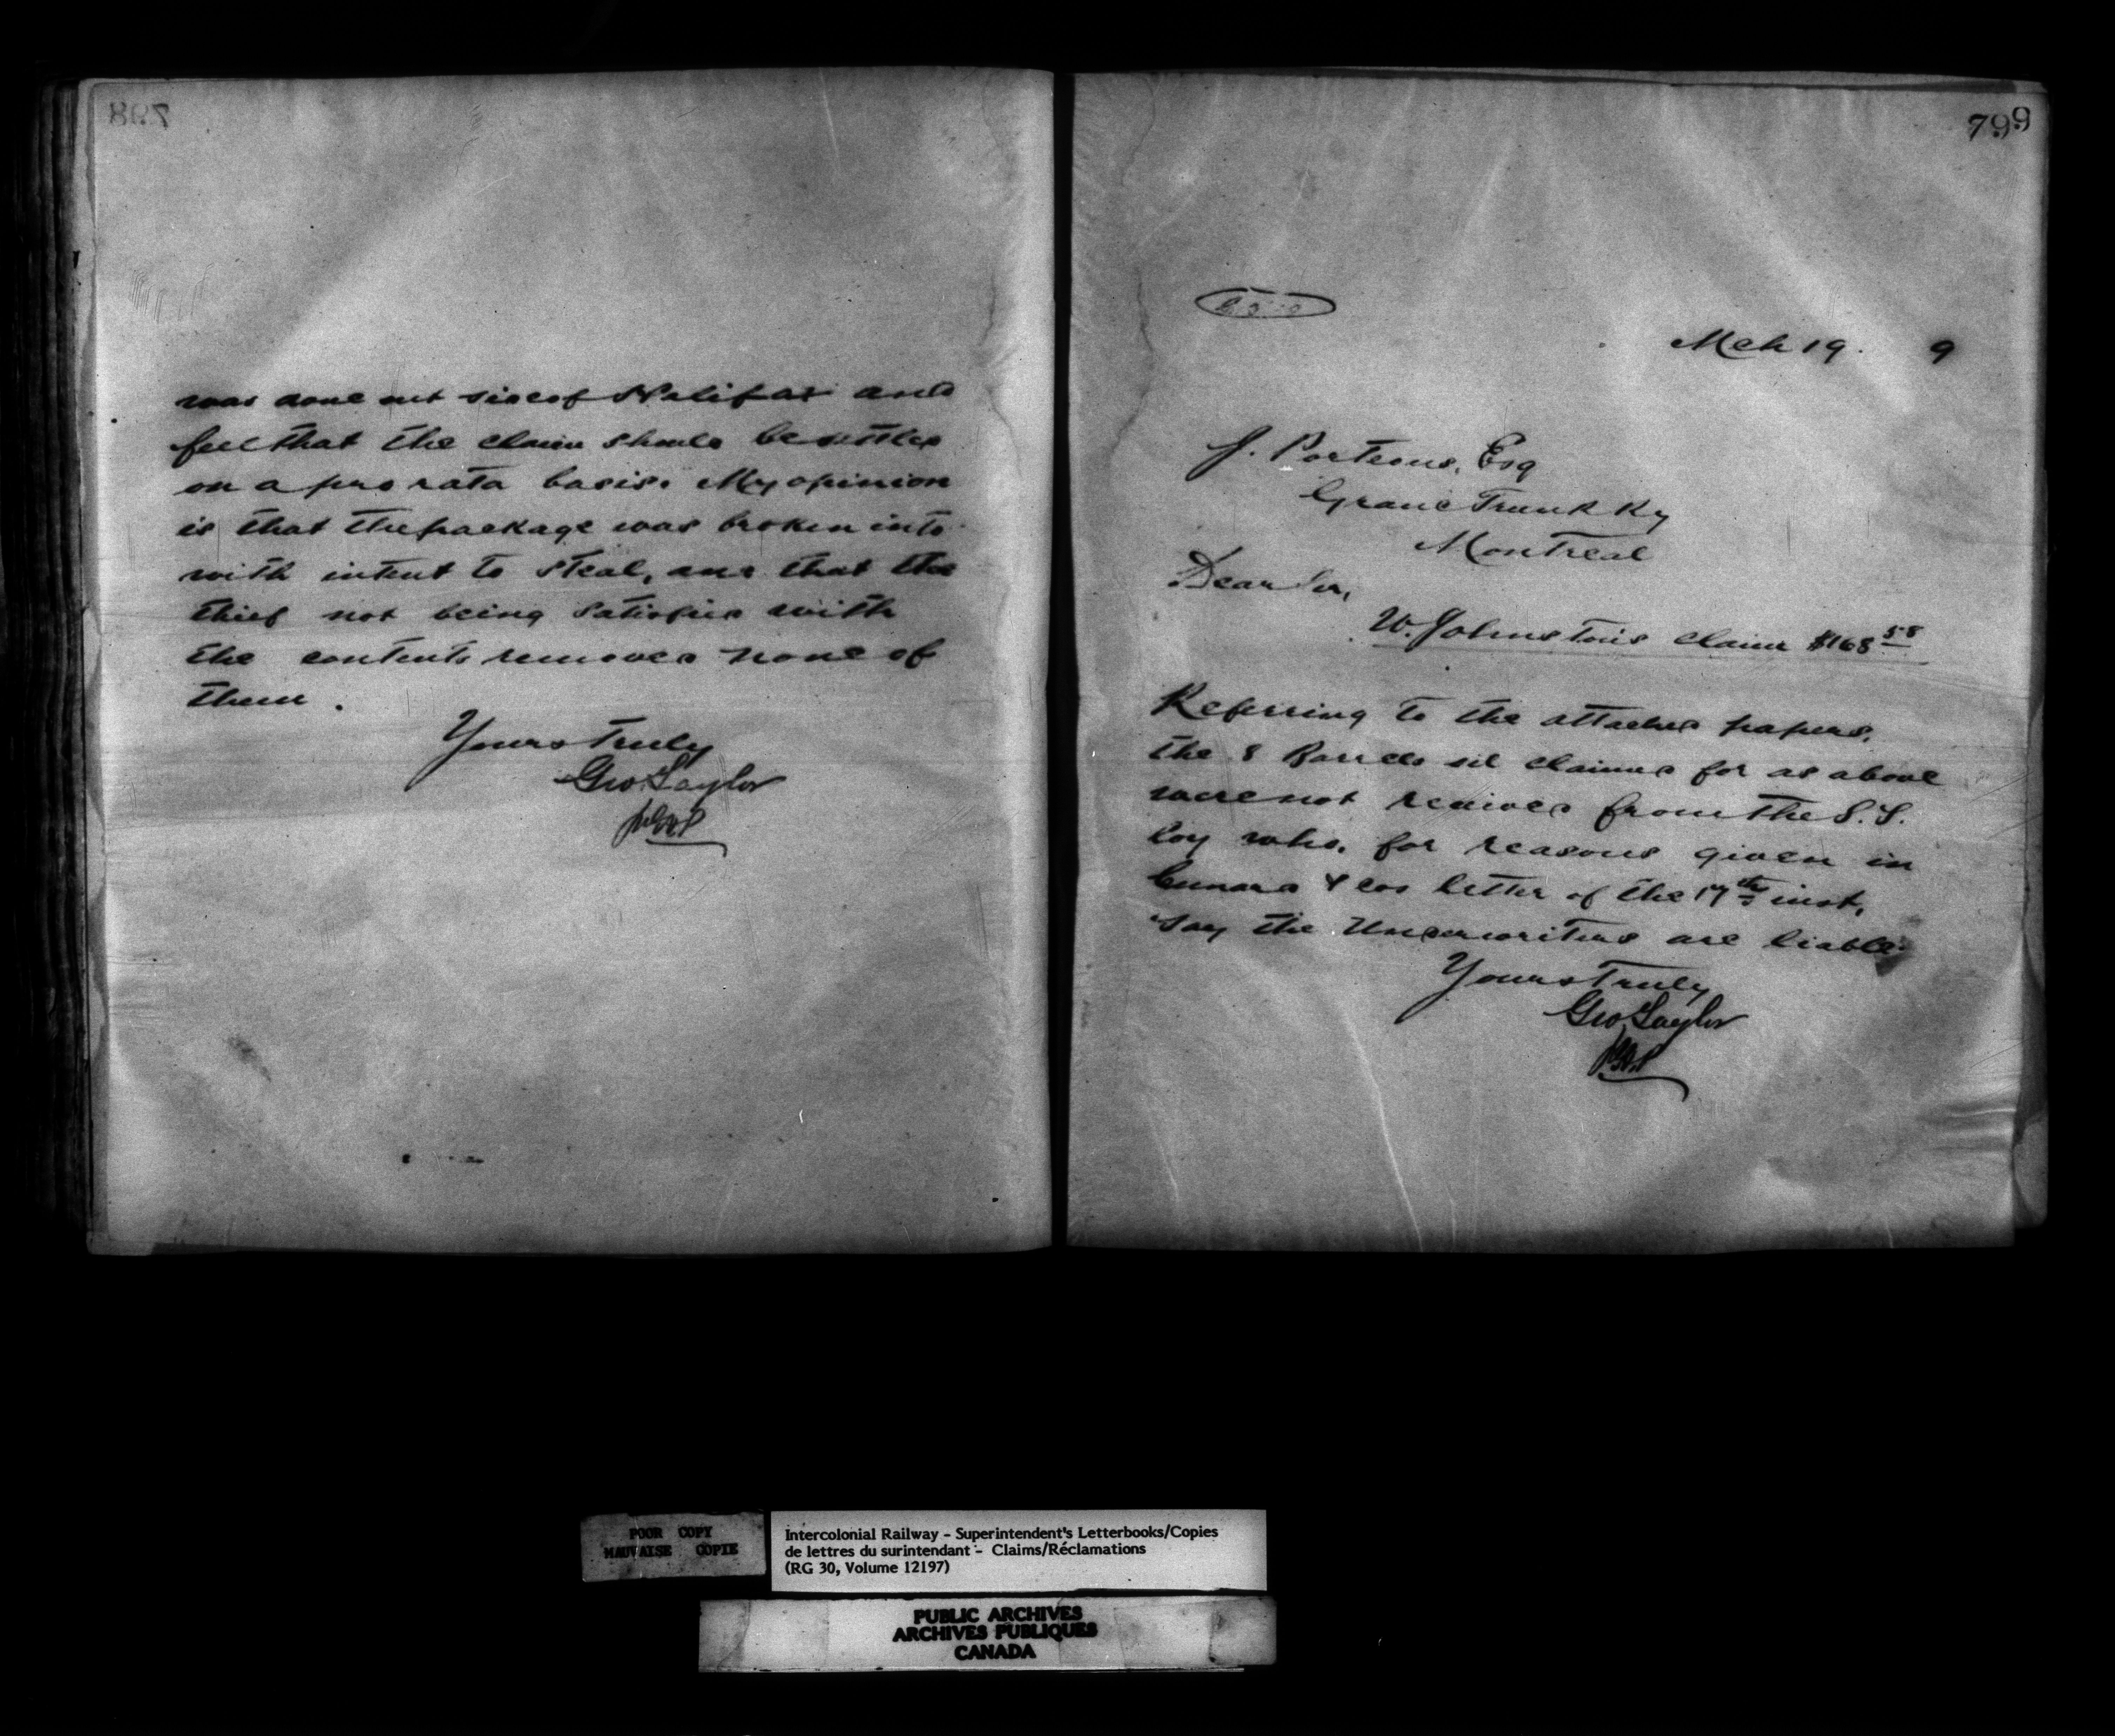 798
was done out side of Halifax and
feel that the claim should be settled
on a pro rata basis. My opinion
is that the package was broken into
with intent to steal, and that the
thief not being satisfied with
the contents removed none of
them.
Yours Truly
Geo Taylor
799
Mch 19. 9
J. Porteous, Esq
Grand Trunk Ry
Montreal
Dear Sir,
W. Johnston's claim $168 58
Referring to the attached papers,
the 8 Barrels oil claimed for as above
were not received from the S.S.
Coy who, for reasons given in
Cunard & Cos letter of the 17th inst,
say the Underwriters are liable.
Yours Truly
Geo Taylor
POOR COPY
MAUVAISE COPIE
Intercolonial Railway - Superintendent's Letterbooks/Copies
de lettres du surintendant - Claims/Réclamations
(RG 30, Volume 12197)
PUBLIC ARCHIVES
ARCHIVES PUBLIQUES
CANADA